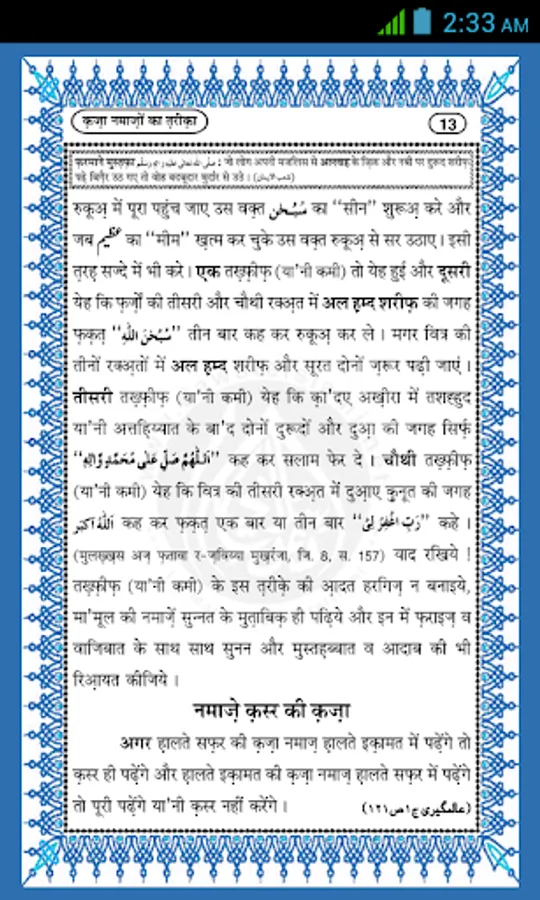 2:33 AM
क़ज़ा नमाज़ों का त़रीक़ा
13
फ़रमाने मुस्त़फ़ा صلى الله تعالى عليه واله وسلم : जो लोग अपनी मजलिस से अल्लाह के ज़िक्र और नबी पर दुरूद शरीफ़
पढ़े बिग़ैर उठ गए तो वोह बदबूदार मुर्दार से उठे । (شعب الايمان)
रुकूअ़ में पूरा पहुंच जाए उस वक़्त سُبْحٰن का ‘‘सीन’’ शुरूअ़ करे और
जब عظیم का ‘‘मीम’’ ख़त्म कर चुके उस वक़्त रुकूअ़ से सर उठाए । इसी
त़रह़ सज्दे में भी करे । एक तख़्फ़ीफ़ (या'नी कमी) तो येह हुई और दूसरी
येह कि फ़र्ज़ों की तीसरी और चौथी रक्अ़त में अल ह़म्द शरीफ़ की जगह
फ़क़त़ ‘‘سُبْحٰنَ اللّٰهِ’’ तीन बार कह कर रुकूअ़ कर ले । मगर वित्र की
तीनों रक्अ़तों में अल ह़म्द शरीफ़ और सूरत दोनों ज़रूर पढ़ी जाएं ।
तीसरी तख़्फ़ीफ़ (या'नी कमी) येह कि क़ा'दए अख़ीरा में तशह्हुद
या'नी अत्तह़िय्यात के बा'द दोनों दुरूदों और दुआ़ की जगह सिर्फ़
‘‘اَللّٰهُمَّ صَلِّ عَلٰی مُحَمَّدٍ وَّاٰلِهٖ’’ कह कर सलाम फेर दे । चौथी तख़्फ़ीफ़
(या'नी कमी) येह कि वित्र की तीसरी रक्अ़त में दुआ़ए क़ुनूत की जगह
اَللّٰهُ اَكْبَر कह कर फ़क़त़ एक बार या तीन बार ‘‘رَبِّ اغْفِرْ لِیْ’’ कहे ।
(मुलख़्ख़स अज़ फ़तावा र-ज़विय्या मुख़र्रजा, जि. 8, स. 157) याद रखिये !
तख़्फ़ीफ़ (या'नी कमी) के इस त़रीक़े की आ़दत हरगिज़ न बनाइये,
मा'मूल की नमाज़ें सुन्नत के मुत़ाबिक़ ही पढ़िये और इन में फ़राइज़ व
वाजिबात के साथ साथ सुनन और मुस्तह़ब्बात व आदाब की भी
रिआ़यत कीजिये ।
नमाज़े क़स्र की क़ज़ा
अगर ह़ालते सफ़र की क़ज़ा नमाज़ ह़ालते इक़ामत में पढ़ेंगे तो
क़स्र ही पढ़ेंगे और ह़ालते इक़ामत की क़ज़ा नमाज़ ह़ालते सफ़र में पढ़ेंगे
तो पूरी पढ़ेंगे या'नी क़स्र नहीं करेंगे । (عالمگیری ج١ ص١٢١)